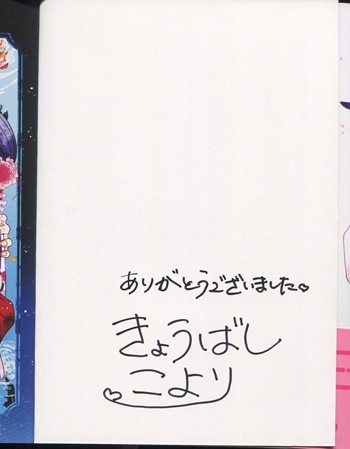 ありがとうございました♡
きょうばし
こより